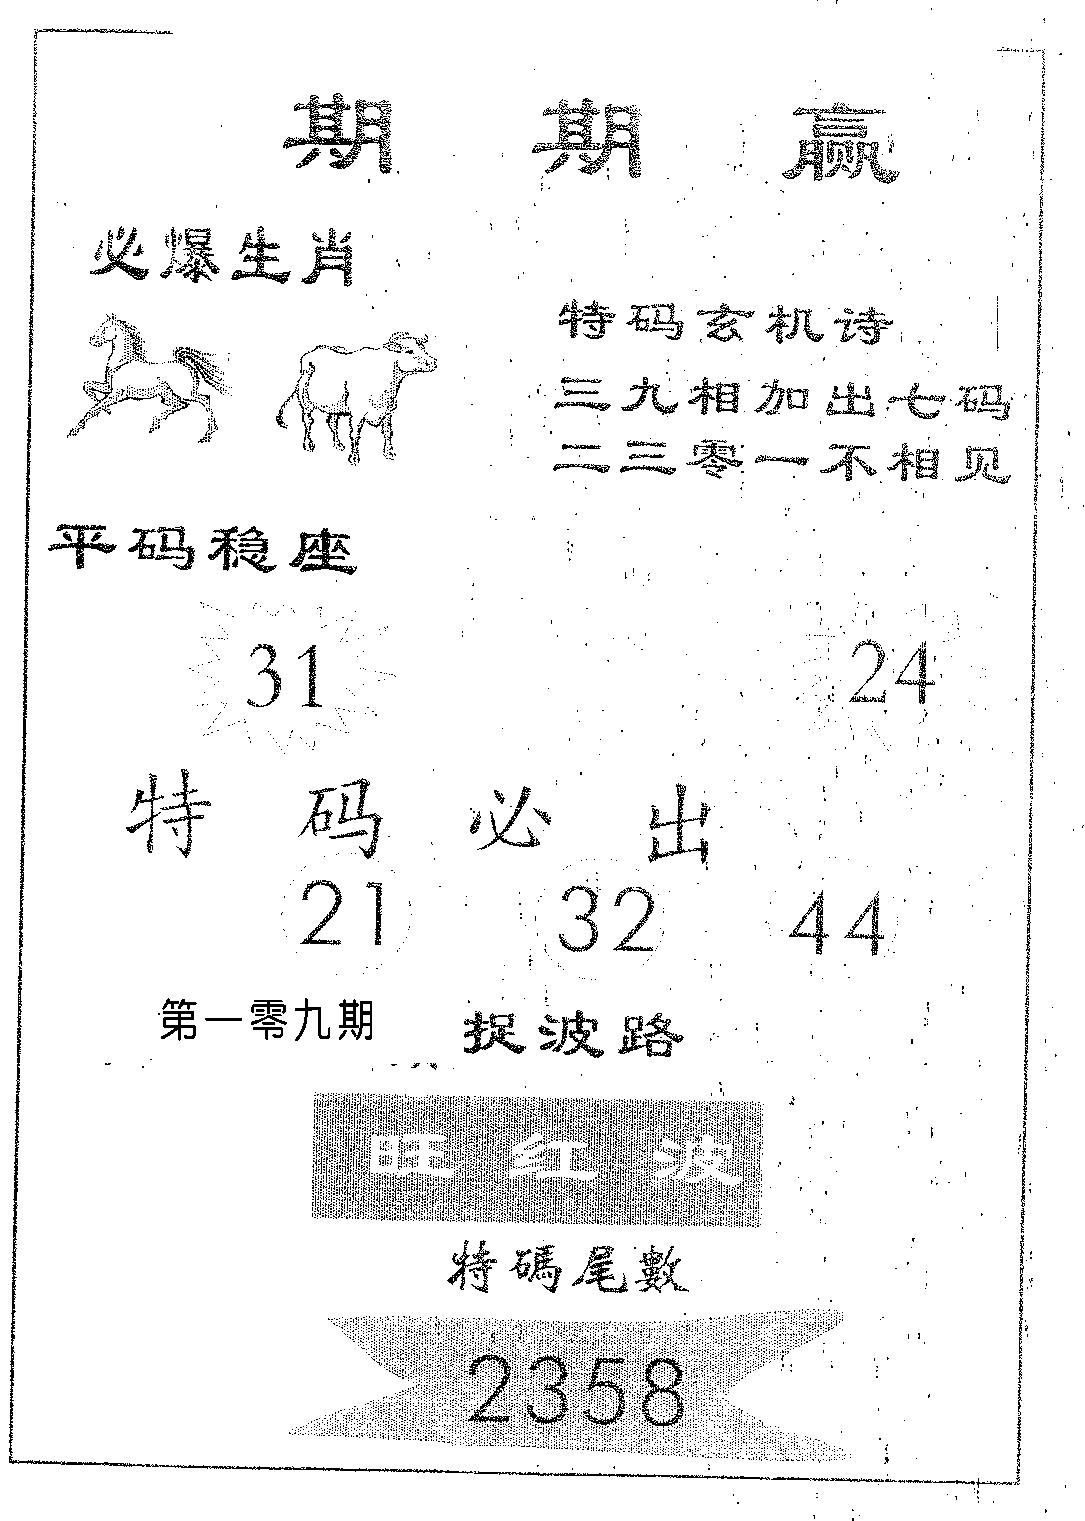 期期赢
必爆生肖
特码玄机诗
三九相加出七码
二三零一不相见
平码稳座
31 24
特码必出
21 32 44
第一零九期 捉波路
旺红波
特碼尾數
2358